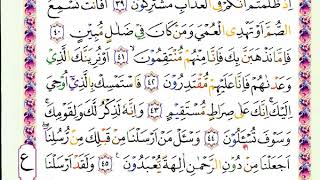 إِذ ظَّلَمْتُمْ أَنَّكُمْ فِي ٱلْعَذَابِ مُشْتَرِكُونَ ٣٩ أَفَأَنتَ تُسْمِعُ
ٱلصُّمَّ أَوْ تَهْدِي ٱلْعُمْيَ وَمَن كَانَ فِي ضَلَٰلٍ مُّبِينٍ ٤٠
فَإِمَّا نَذْهَبَنَّ بِكَ فَإِنَّا مِنْهُم مُّنتَقِمُونَ ٤١ أَوْ نُرِيَنَّكَ ٱلَّذِي
وَعَدْنَٰهُمْ فَإِنَّا عَلَيْهِم مُّقْتَدِرُونَ ٤٢ فَٱسْتَمْسِكْ بِٱلَّذِيٓ أُوحِيَ
إِلَيْكَ إِنَّكَ عَلَىٰ صِرَٰطٍ مُّسْتَقِيمٍ ٤٣ وَإِنَّهُۥ لَذِكْرٌ لَّكَ وَلِقَوْمِكَ
وَسَوْفَ تُسْـَٔلُونَ ٤٤ وَسْـَٔلْ مَنْ أَرْسَلْنَا مِن قَبْلِكَ مِن رُّسُلِنَآ
أَجَعَلْنَا مِن دُونِ ٱلرَّحْمَٰنِ ءَالِهَةً يُعْبَدُونَ ٤٥ وَلَقَدْ أَرْسَلْنَا
ع